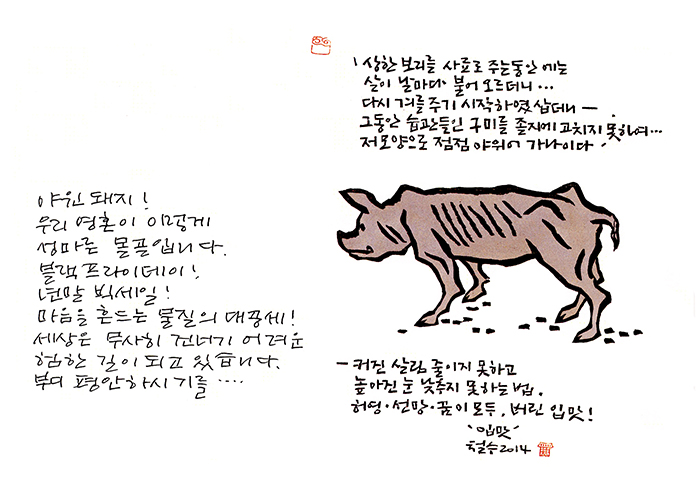 야윈 돼지!
우리 영혼이 이렇게
섬마른 몰골입니다.
블랙프라이데이!
년말 빅세일!
마음을 흔드는 물질의 대공세!
세상은 무사히 건너기 어려운
험한 길이 되고 있습니다.
부디 평안하시기를 ....
' 상한 보리를 사료로 주는동안 에는
살이 날마다 불어 오르더니 ...
다시 겨를 주기 시작하였삽더니 —
그동안 습관들인 구미를 졸지에 고치지 못하여...
저모양으로 점점 야위어 가나이다 '
— 커진 살림 줄이지 못하고
높아진 눈 낮추지 못하는 법.
허영·선망·꿈이 모두, 버린 입맛!
'입맛'
철수 2014